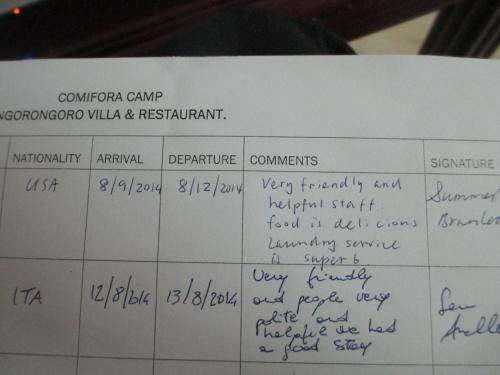 COMIFORA CAMP
NGORONGORO VILLA & RESTAURANT.
NATIONALITY ARRIVAL DEPARTURE COMMENTS SIGNATURE
USA 8/9/2014 8/12/2014 Very friendly and
helpful staff.
food is delicious
Laundry service
is superb.
Summer
ITA 12/8/2014 13/8/2014 Very friendly
and people very
polite and
helpful we had
a good stay